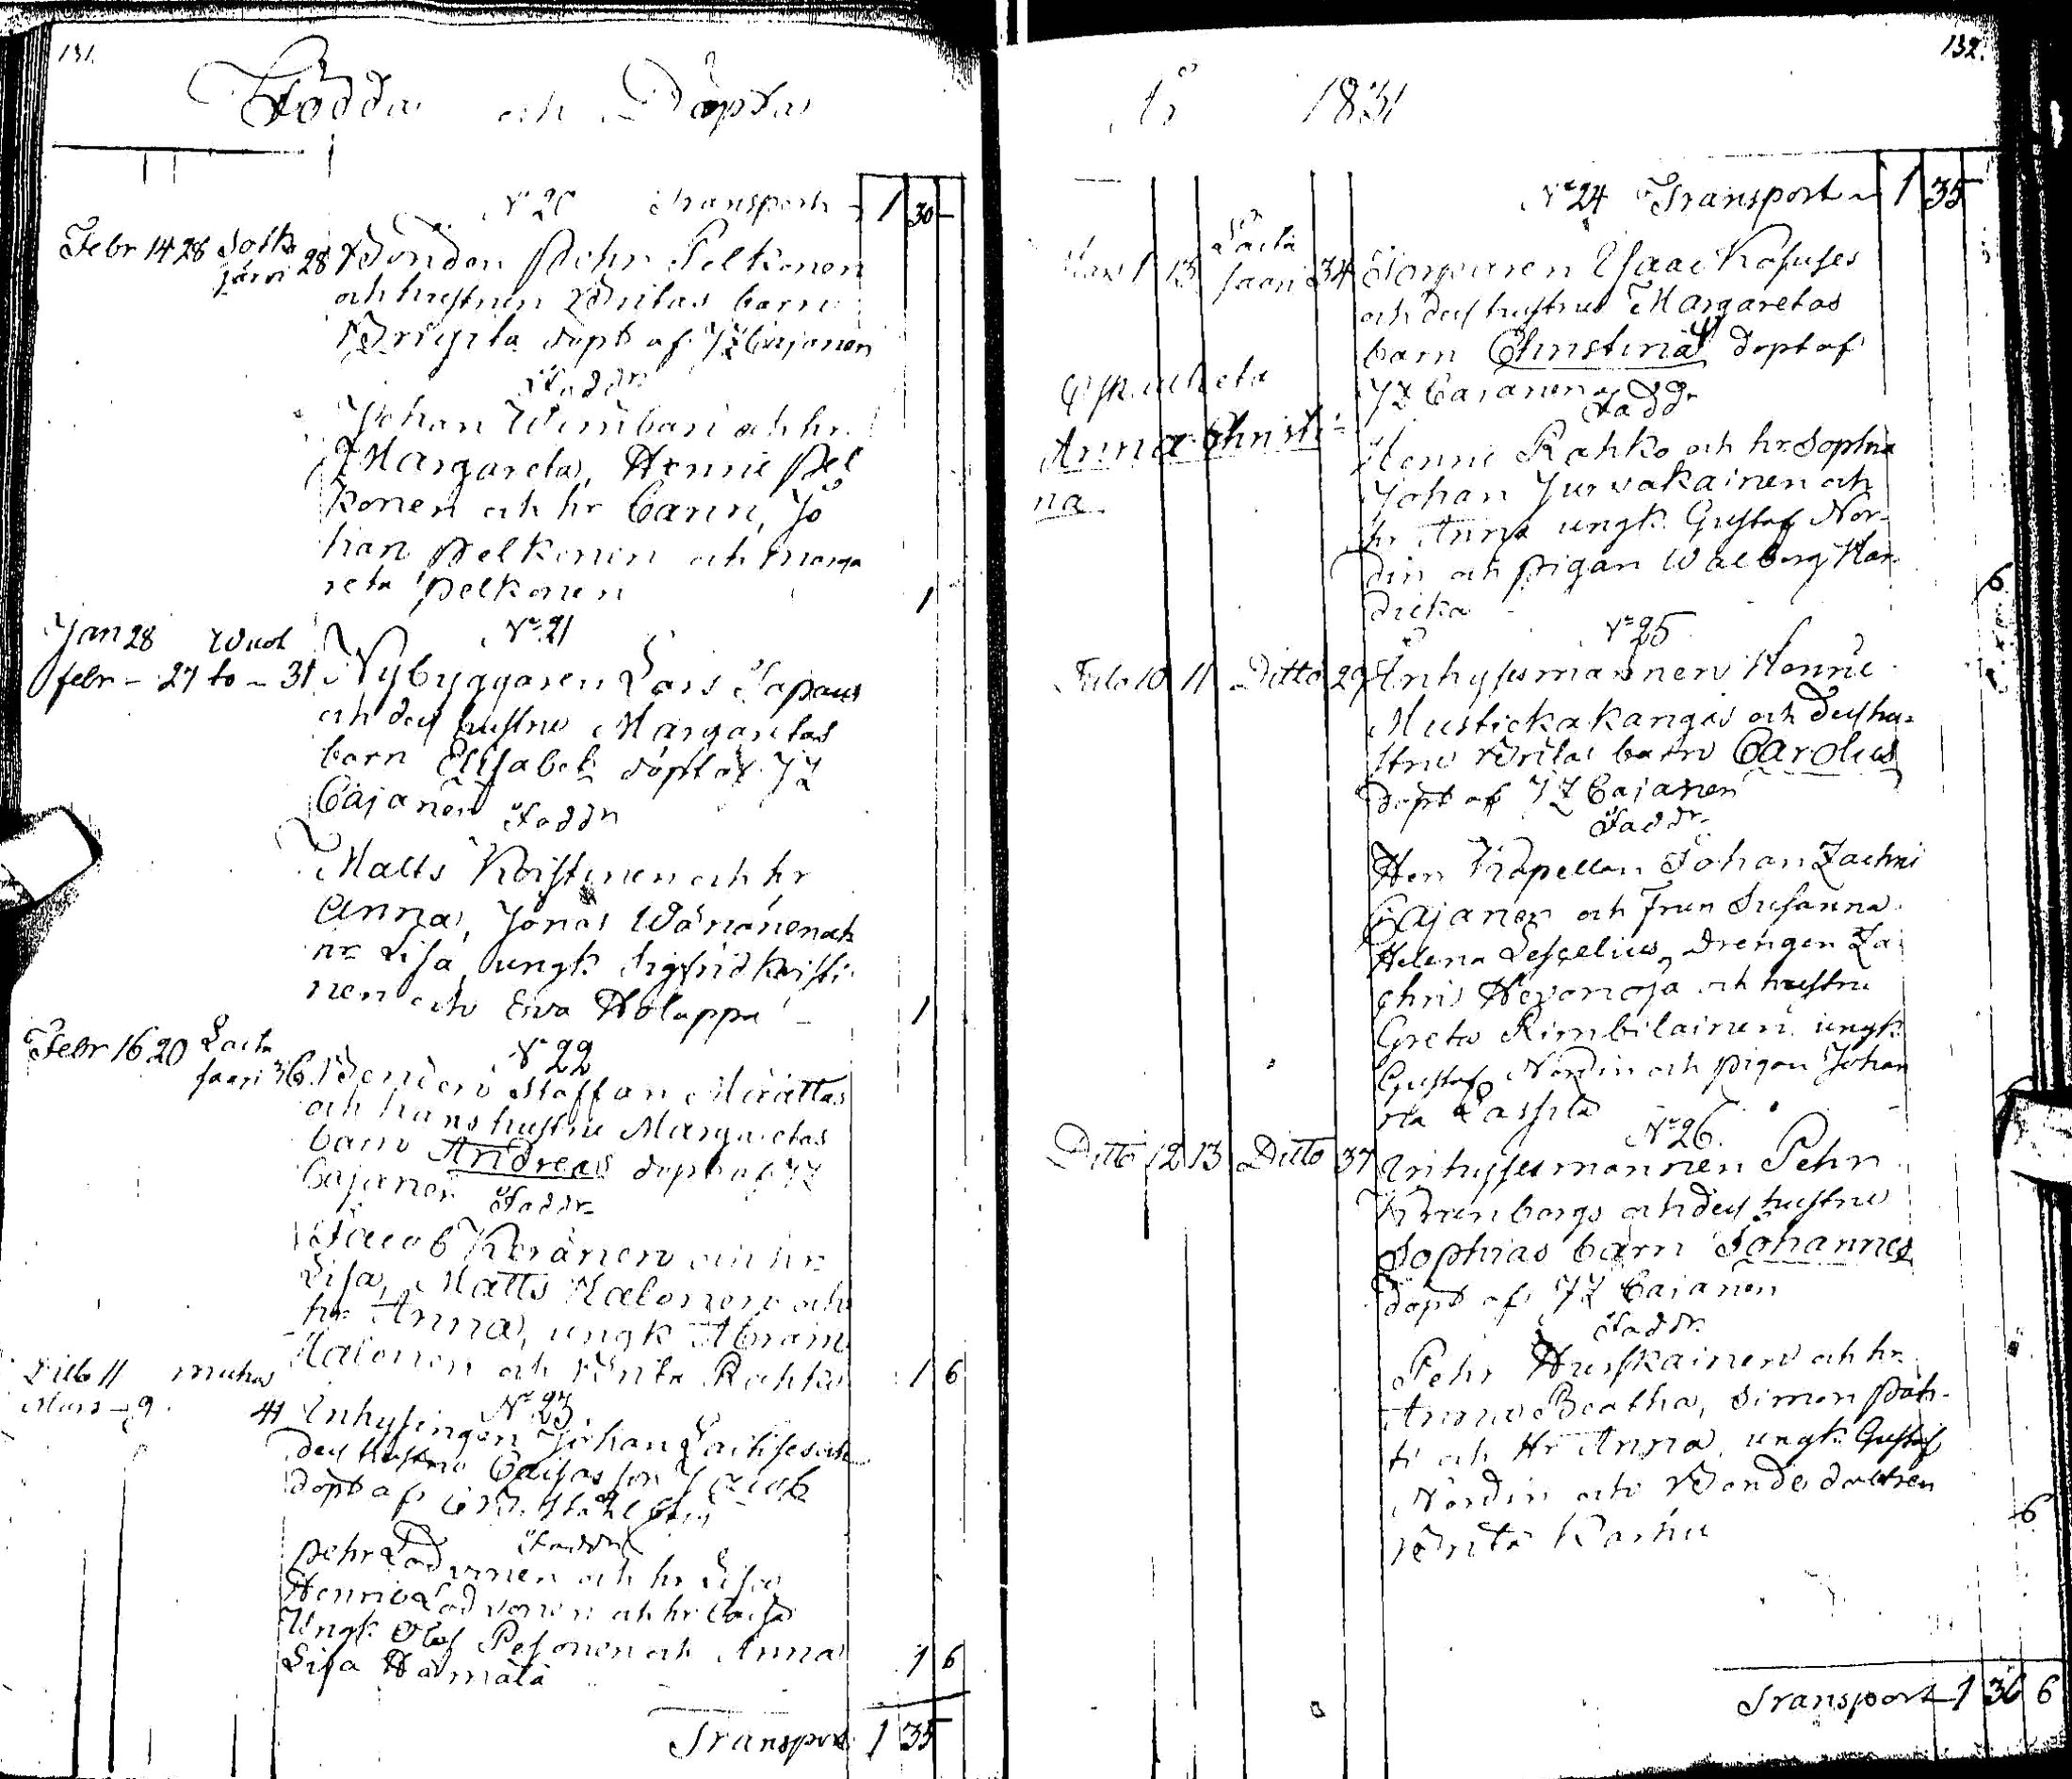 131.
Födda och Döpta
No 20 Transport 1 30 -
Febr 14 28 Sotka
järvi 28 Bonden Pehr Pelkonen
och hustrun Britas barn
Brigita döpt af JZ Cajanen
Faddr
Johan Wimbari och hr
Margareta, Henric Pel
konen och hr Carin, Jo
han Pelkonen och Marga
reta Pelkonen 1
No 21
Jan 28 Wuol
febr - 27 to - 31 Nybyggaren Lars Tapans
och dess hustru Margaretas
barn Elisabet döpt af JZ
Cajanen Faddr
Matts Koistinen och hr
Anna, Jonas Wänänen och
hr Lisa, ungk Sigfrid Koisti
nen och Eva Holappa - 1
No 22
Febr 16 20 Laita
saari 36 Bonden Staffan Määttas
och hans hustru Margaretas
barn Andreas döpt af JZ
Cajanen Faddr
Jacob Keränen och hr
Lisa, Matts Halonen och
hr Anna, ungk Abram
Halonen och Brita Rahko 1 6
No 23
Ditto 11 muhos
Mars - 9 41 Inhysingen Johan Laitises och
dess hustru Caisas son Jacob
döpt af
Faddr
Pehr Ladvonen och hr Lisa
Henric Ladvonen och hr Caisa
Ungk Olof Pesonen och Anna
Lisa Hämälä 1 6
Transport 1 35
132.
År 1831
No 24 Transport - 1 35
Mars 1 13 Laita
saari 34 Torparen Isaac Kosuses
och dess hustrus Margaretas
barn Christina döpt af
JZ Cajanen Faddr
Anna Christi-
na
Henric Rahko och hr Sophia
Johan Jurvakainen och
hr Anna ungk. Gustaf Nor-
din och pigan Walborg Har
dicka 6
No 25
Ditto 10 11 Ditto 29 Inhysesmannen Henric
Mustickakangas och dess hu-
strus Britas barn Carolus
döpt af JZ Cajanen
Faddr
Herr Kapellan Johan Zachris
Cajanen och Frun Susanna
Helena Deseelius, Drengen Za
chris Hevonoja och hustru
Greta Rimbilainen ungk.
Gustaf Nordin och pigan Johan
na Lassila
No 26.
Ditto 12 13 Ditto 37 Inhysesmannen Pehr
Krrenborgs och dess hustru
Sophias barn Johannes
döpt af JZ Cajanen
Faddr.
Pehr Huuskainen och hr.
Anna Beatha, Simon Pah-
ti och Hr Anna, ungk. Gustaf
Nordin och Bondedottren
Brita Karhu 6
Transport 1 36 6